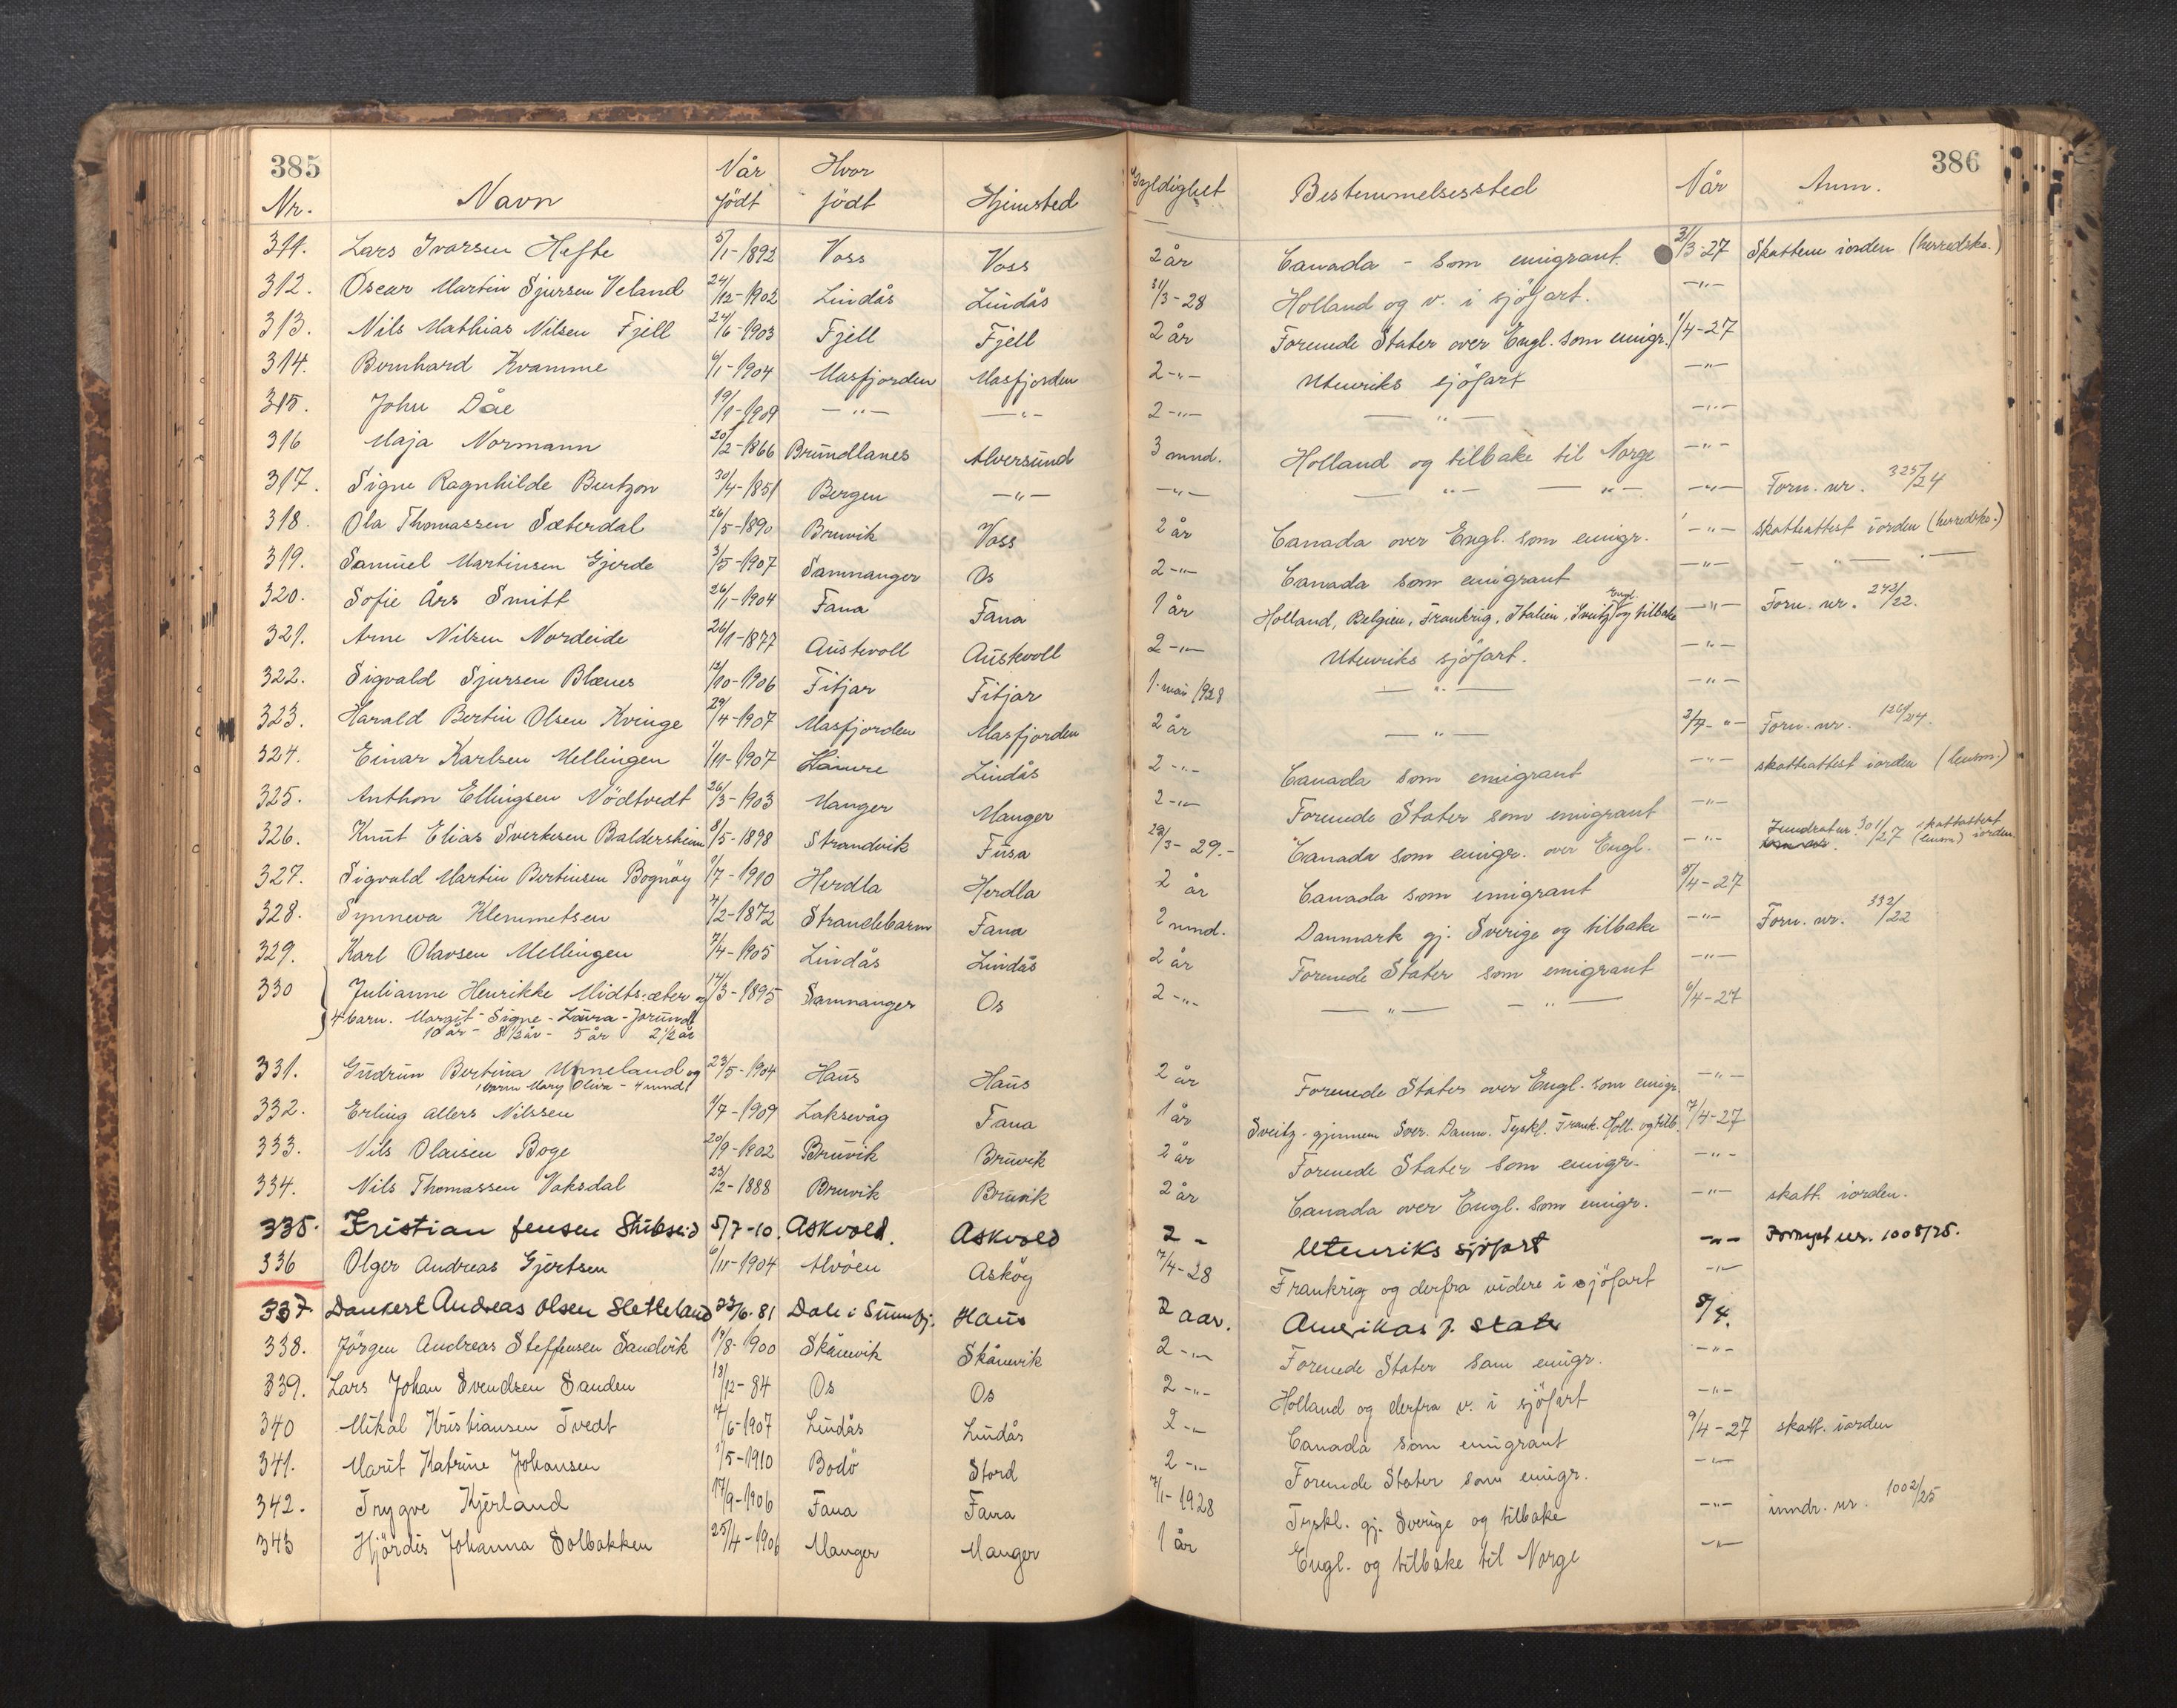 385
386
Nr. Navn Når födt Hvor födt Hjemsted Gyldighet Bestemmelsessted Når Anm.
311. Lars Ivarsen Hefte 5/1-1892 Voss Voss 2 år Canada - som emigrant. 31/3-27 Skattem iorden (herredsks.)
312. Oscar Martin Sjursen Veland 24/12-1902 Lindås Lindås 31/3-28 Holland og v. i sjöfart. -"-
313. Nils Mathias Nilsen Fjell 24/6-1903 Fjell Fjell 2 år Forenede Stater over Engl. som emigr. 1/4-27
314. Bernhard Kvamme 6/1-1904 Masfjorden Masfjorden 2-"- Utenriks sjöfart -"-
315. John Dåe 19/1-1909 -"- -"- 2-"- -"- -"-
316 Maja Normann 20/2-1866 Brundlanes Alversund 3 mnd. Holland og tilbake til Norge -"-
317. Signe Ragnhilde Bentzon 30/4-1851 Bergen -"- -"- -"- -"- -"- Forn. nr. 325/24
318. Ola Thomassen Sæterdal 26/5-1890 Bruvik Voss 2 år Canada over Engl. som emigr. -"- skatteattest iorden (herredsks.)
319. Samuel Martinsen Gjerde 3/5-1907 Samnanger Os 2-"- Canada som emigrant -"- - " -
320. Sofie Års Smitt 26/1-1904 Fana Fana 1 år Holland, Belgien, Frankrig, Italien, Sveitz Engl. og tilbake -"- Forn. nr. 243/22.
321. Arne Nilsen Nordeide 26/1-1877 Austevoll Austevoll 2-"- Utenriks sjöfart. -"-
322. Sigvald Sjursen Blænes 12/10-1906 Fitjar Fitjar 1. mai 1928 -"- -"-
323. Harald Bertin Olsen Kvinge 29/4-1907 Masfjorden Masfjorden 2 år -"- 2/4-"- Forn. nr. 126/24.
324. Einar Karlsen Mellingen 1/11-1907 Hamre Lindås 2-"- Canada som emigrant -"- skatteattest iorden (lensm.)
325. Anthon Ellingsen Nödtvedt 26/3-1903 Manger Manger 2-"- Forenede Stater som emigrant -"-
326. Knut Elias Sverkesen Baldersheim 8/5-1898 Strandvik Fusa 29/3-29.- Canada som emigr. over Engl. -"- Inndratt nr. 301/27 skatteattest (lensm) iorden
327. Sigvald Martin Bertinsen Bognöy 9/7-1910 Herdla Herdla 2 år Canada som emigrant 5/4-27
328. Synneva Klemmetsen 4/2-1872 Strandebarm Fana 2 mnd. Danmark gj. Sverige og tilbake -"- Forn. nr. 332/22
329. Karl Olavsen Mellingen 7/4-1905 Lindås Lindås 2 år Forenede Stater som emigrant -"-
330 Julianne Henrikke Midtsæter og 14/3-1895 Samnanger Os 2-"- -"- -"- 6/4-27
4 barn. Margit - Signe - Laura - Jorund
10 år - 8 1/2 år - 5 år 2 1/2 år
331. Gudrun Bertina Unneland og 23/5-1904 Haus Haus 2 år Forenede Stater over Engl. som emigr. -"-
1 barn Mary Oliva - 4 mndr
332. Erling Allers Nilssen 1/7-1909 Laksevåg Fana 1 år Sveitz - gjennem Sver. Danm. Tyskl. Frank. Holl. og tilb. 7/4-27
333. Nils Olaisen Boge 20/9-1902 Bruvik Bruvik 2 år Forenede Stater som emigr. -"-
334. Nils Thomassen Vaksdal 23/2-1888 Bruvik Bruvik 2 år Canada over Engl. som emigr. -"- skatt. iorden.
335. Kristian Jensen Stubseid 5/7-10. Askvold. Askvold 2 - Utenriks sjöfart -"- Fornyet nr. 1008/25.
336 Olger Andreas Gjertsen 6/11-1904 Alvöen Asköy 7/4-28 Frankrig og derfra videre i sjöfart -"-
337. Dankert Andreas Olsen Sletteland 23/6-81 Dale i Sunnfj. Haus 2 aar. Amerikas f. stater 8/4.
338. Jörgen Andreas Steffensen Sandvik 19/8-1900 Skånevik Skånevik 2-"- Forenede Stater som emigr. -"-
339. Lars Johan Svendsen Sanden 13/12-84 Os Os 2-"- Holland og derfra v. i sjöfart -"-
340 Mikal Kristiansen Tvedt 7/6-1907 Lindås Lindås 2-"- Canada som emigrant 9/4-27 skatt. iorden
341. Marit Katrine Johansen 1/5-1910 Bodö Stord 2-"- Forenede Stater som emigr. -"-
342. Trygve Kjerland 17/9-1906 Fana Fana 7/1-1928 Tyskl. gj. Sverige og tilbake -"- inndr. nr. 1002/25
343 Hjördis Johanna Solbakken 25/4-1906 Manger Manger 1 år Engl. og tilbake til Norge -"-